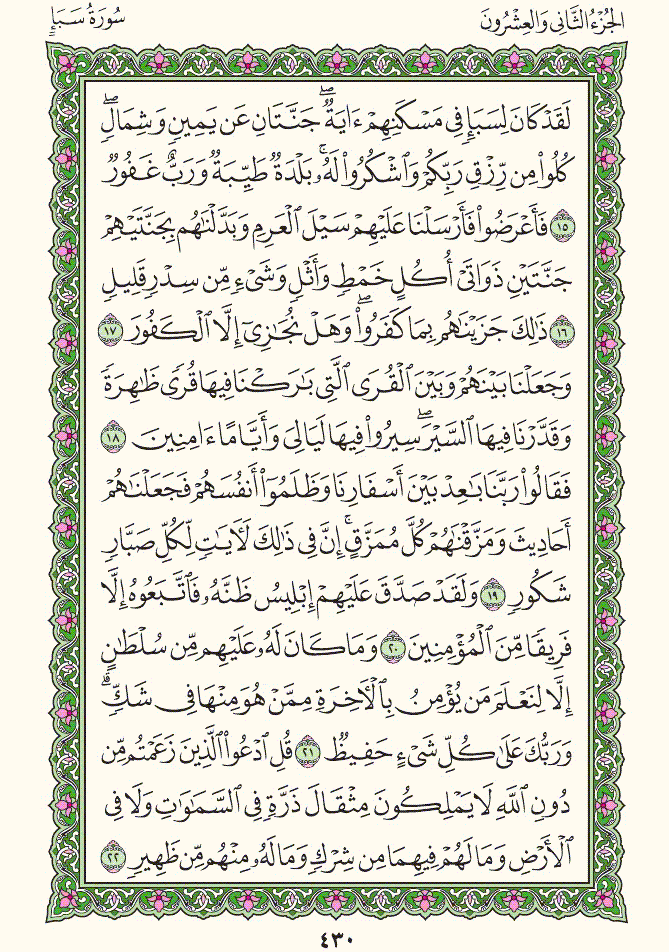 الجزء الثاني والعشرون
سورة سبإ
لَقَدْ كَانَ لِسَبَإٍ فِي مَسْكَنِهِمْ ءَايَةٌۖ جَنَّتَانِ عَن يَمِينٍ وَشِمَالٍۖ
كُلُوا۟ مِن رِّزْقِ رَبِّكُمْ وَٱشْكُرُوا۟ لَهُۥۚ بَلْدَةٌ طَيِّبَةٌ وَرَبٌّ غَفُورٌ
١٥ فَأَعْرَضُوا۟ فَأَرْسَلْنَا عَلَيْهِمْ سَيْلَ ٱلْعَرِمِ وَبَدَّلْنَٰهُم بِجَنَّتَيْهِمْ
جَنَّتَيْنِ ذَوَاتَىْ أُكُلٍ خَمْطٍ وَأَثْلٍ وَشَىْءٍ مِّن سِدْرٍ قَلِيلٍ
١٦ ذَٰلِكَ جَزَيْنَٰهُم بِمَا كَفَرُوا۟ۖ وَهَلْ نُجَٰزِىٓ إِلَّا ٱلْكَفُورَ ١٧
وَجَعَلْنَا بَيْنَهُمْ وَبَيْنَ ٱلْقُرَى ٱلَّتِى بَٰرَكْنَا فِيهَا قُرًى ظَٰهِرَةً
وَقَدَّرْنَا فِيهَا ٱلسَّيْرَۖ سِيرُوا۟ فِيهَا لَيَالِىَ وَأَيَّامًا ءَامِنِينَ ١٨
فَقَالُوا۟ رَبَّنَا بَٰعِدْ بَيْنَ أَسْفَارِنَا وَظَلَمُوٓا۟ أَنفُسَهُمْ فَجَعَلْنَٰهُمْ
أَحَادِيثَ وَمَزَّقْنَٰهُمْ كُلَّ مُمَزَّقٍۚ إِنَّ فِى ذَٰلِكَ لَءَايَٰتٍ لِّكُلِّ صَبَّارٍ
شَكُورٍ ١٩ وَلَقَدْ صَدَّقَ عَلَيْهِمْ إِبْلِيسُ ظَنَّهُۥ فَٱتَّبَعُوهُ إِلَّا
فَرِيقًا مِّنَ ٱلْمُؤْمِنِينَ ٢٠ وَمَا كَانَ لَهُۥ عَلَيْهِم مِّن سُلْطَٰنٍ
إِلَّا لِنَعْلَمَ مَن يُؤْمِنُ بِٱلْءَاخِرَةِ مِمَّنْ هُوَ مِنْهَا فِى شَكٍّۗ
وَرَبُّكَ عَلَىٰ كُلِّ شَىْءٍ حَفِيظٌ ٢١ قُلِ ٱدْعُوا۟ ٱلَّذِينَ زَعَمْتُم مِّن
دُونِ ٱللَّهِ لَا يَمْلِكُونَ مِثْقَالَ ذَرَّةٍ فِى ٱلسَّمَٰوَٰتِ وَلَا فِى
ٱلْأَرْضِ وَمَا لَهُمْ فِيهِمَا مِن شِرْكٍ وَمَا لَهُۥ مِنْهُم مِّن ظَهِيرٍ ٢٢
٤٣٠